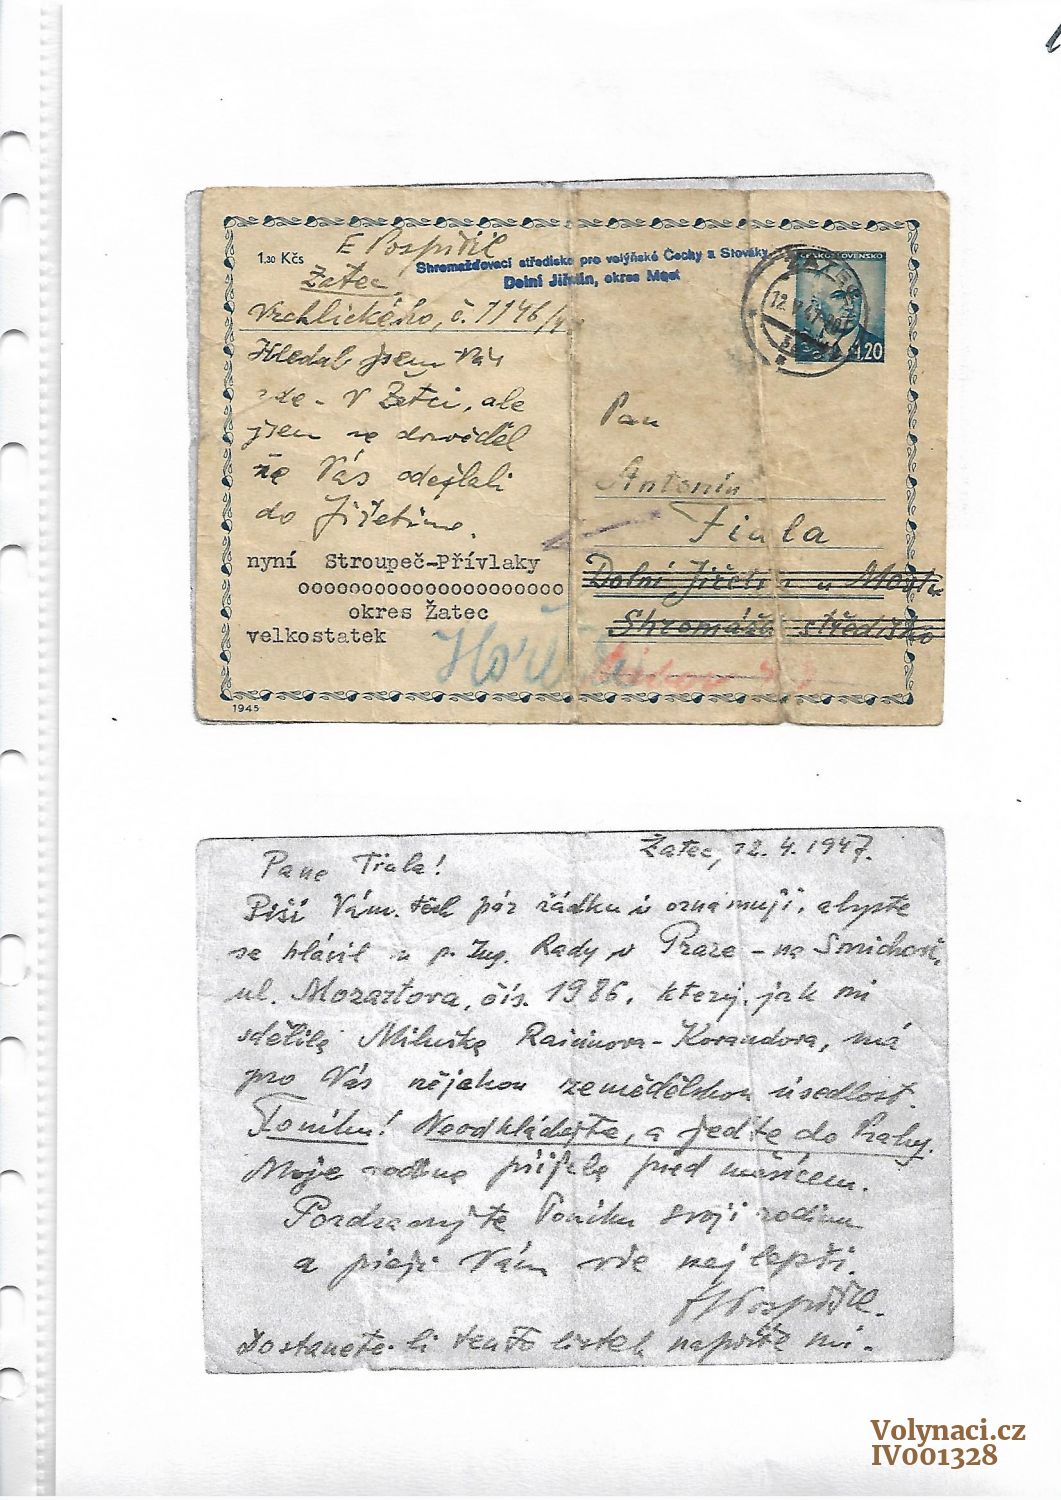 1.30 Kčs
E Pospíšil
Žatec
Vrchlického, č. 1146/
Shromažďovací středisko pro volyňské Čechy a Slováky
Dolní Jiřetín, okres Most
ČESKOSLOVENSKO
1.20
Hledal jsem Vás
zde - v Žatci, ale
jsem se dověděl
že Vás odeslali
do Jiřetína.
nyní Stroupeč-Přívlaky
oooooooooooooooooooo
okres Žatec
velkostatek
Pan
Antonín
Fiala
Dolní Jiřetín u Mostu
Shromážď středisko
1945
Žatec, 12. 4. 1947.
Pane Fiala!
Píši Vám těch pár řádků a oznamuji, abyste
se hlásil u p. Ing. Rady v Praze - na Smíchově,
ul. Mozartova, čís. 1986, který, jak mi
sdělila Miluška Korandova, má
pro Vás nějakou zemědělskou usedlost.
Toníku! Neodkládejte, a jeďte do Prahy.
Moje rodina přijela před měsícem.
Pozdravujte Toníku svoji rodinu
a přeji Vám vše nejlepší.
Pospíšil.
Dostanete-li tento lístek napište mi.
Volynaci.cz
IV001328